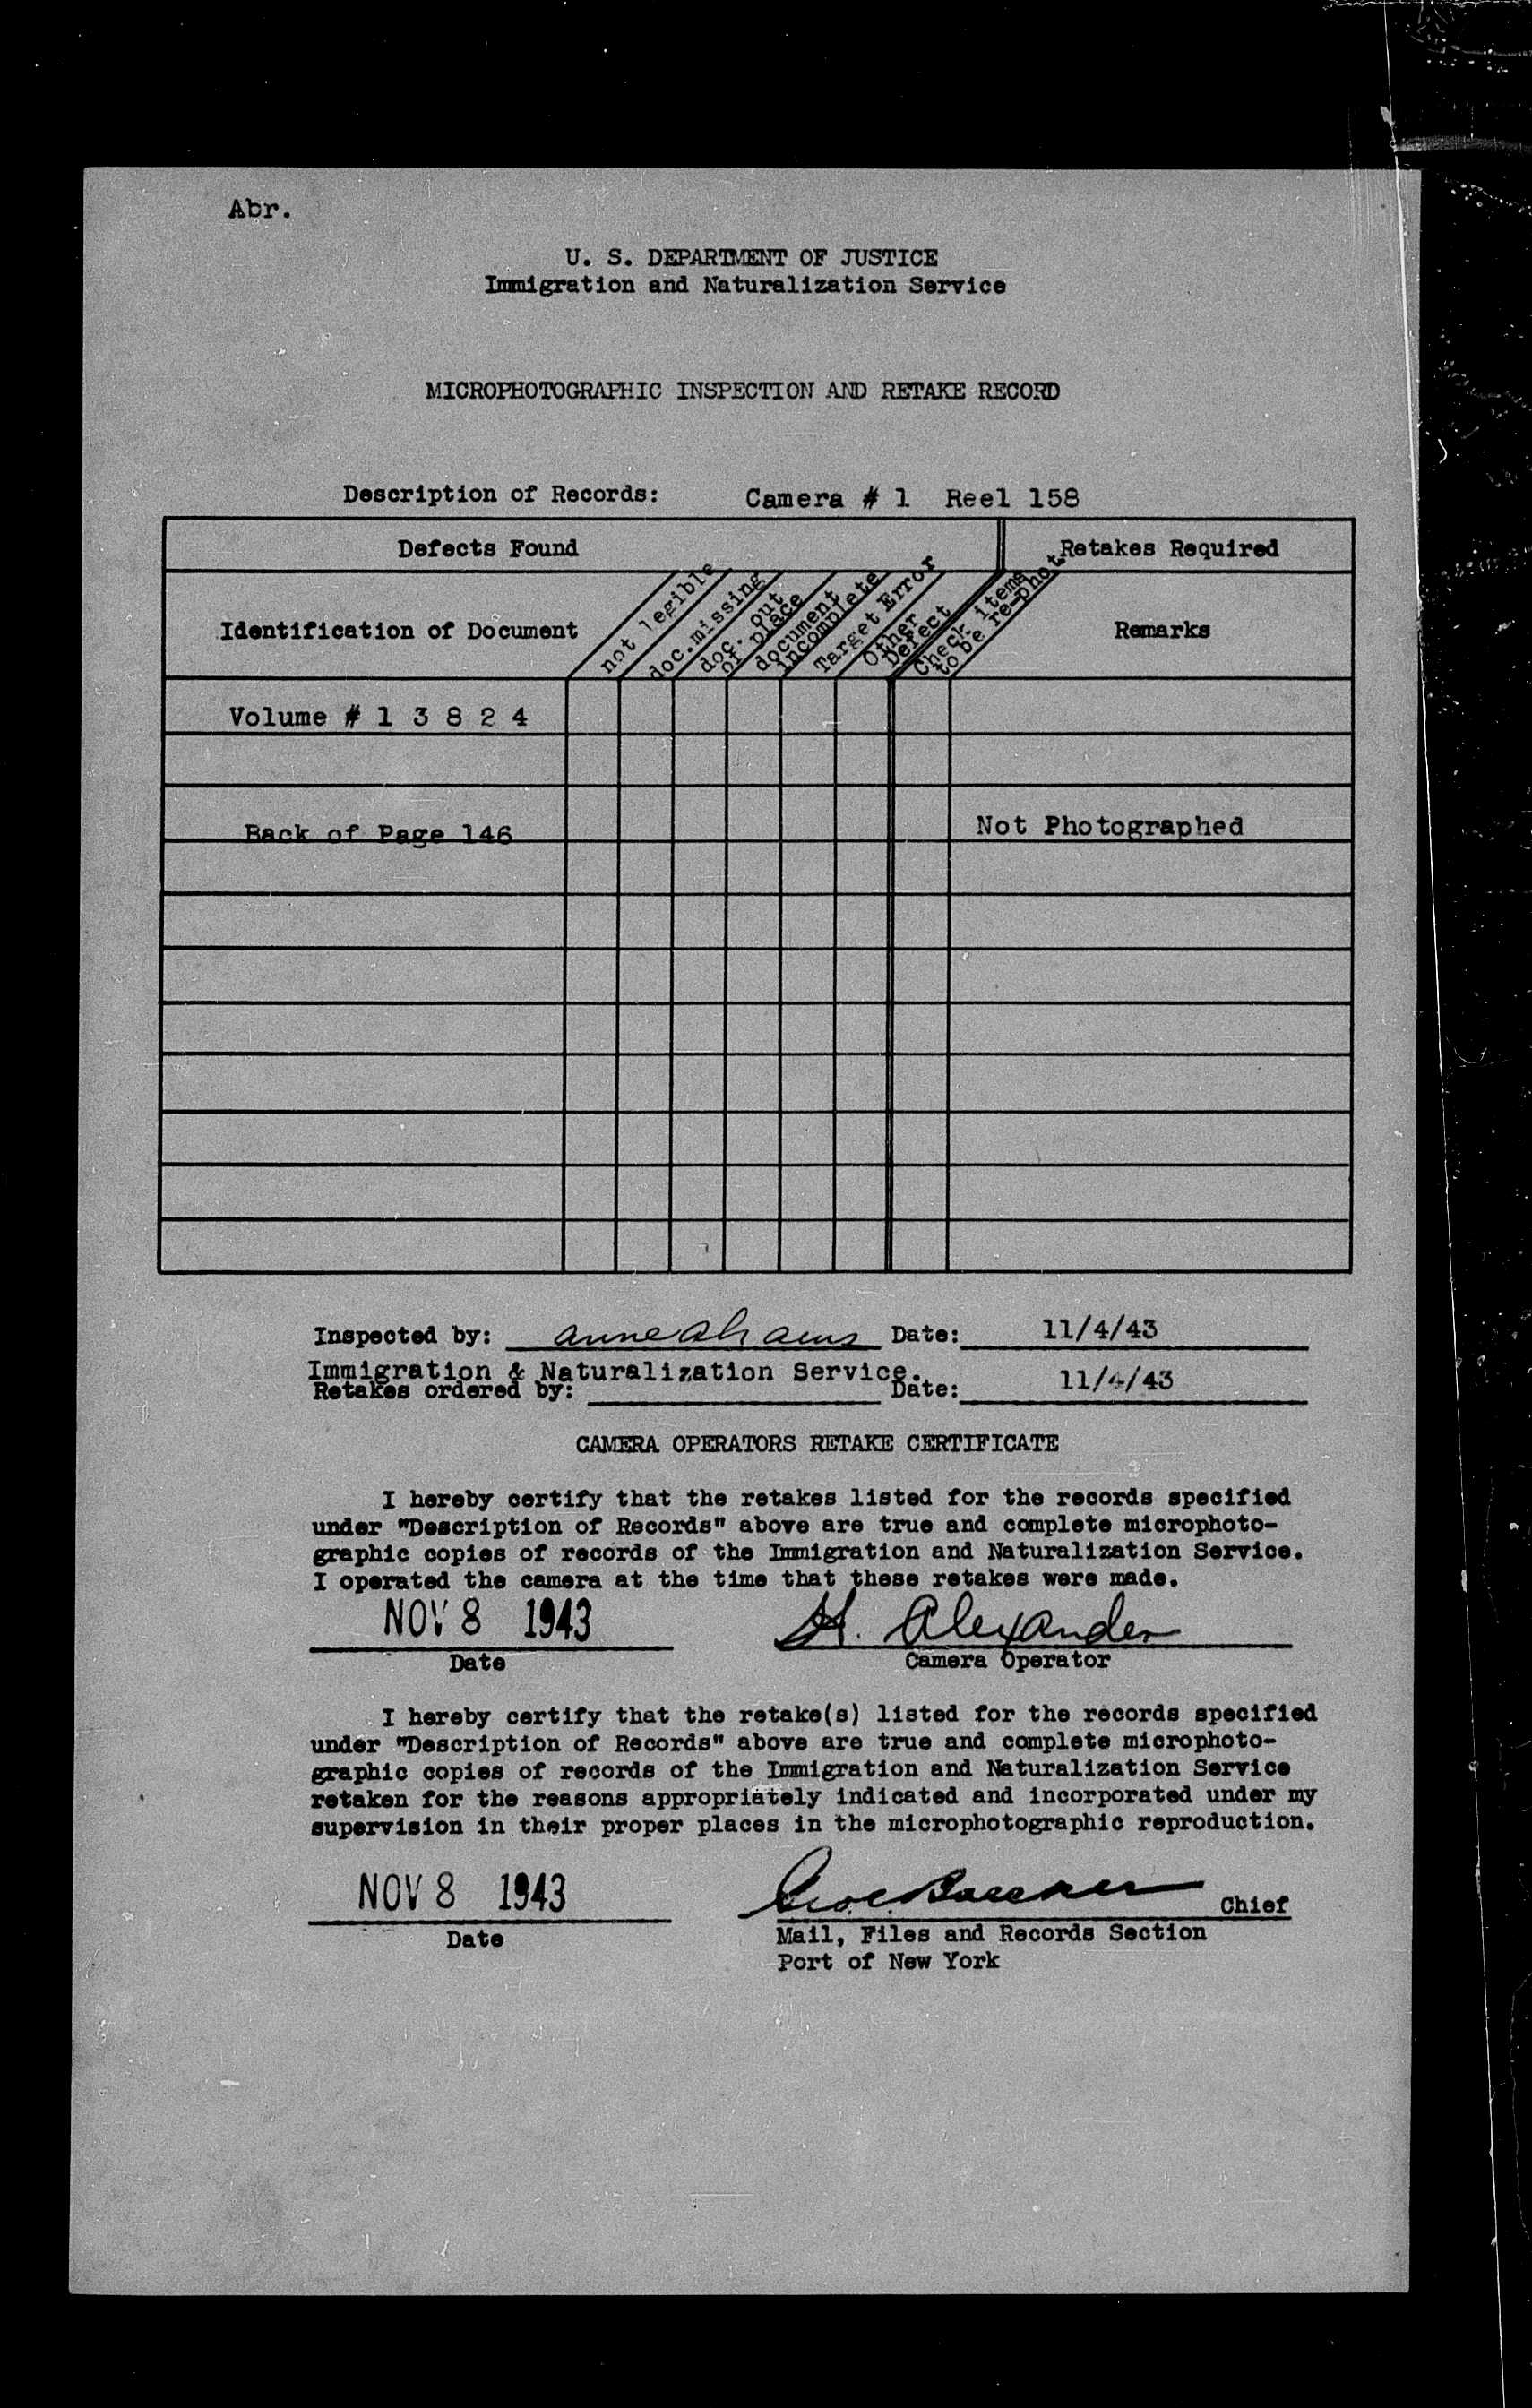 Abr.
U. S. DEPARTMENT OF JUSTICE
Immigration and Naturalization Service
MICROPHOTOGRAPHIC INSPECTION AND RETAKE RECORD
Description of Records: Camera # 1 Reel 158
Defects Found
Retakes Required
Identification of Document
not legible
doc. missing
doc. out
of place
document
incomplete
Target Error
Other
Defect
Check items
to be re-phot.
Remarks
Volume # 1 3 8 2 4
Back of Page 146 Not Photographed
Inspected by: Anne Date: 11/4/43
Immigration & Naturalization Service.
Retakes ordered by: Date: 11/4/43
CAMERA OPERATORS RETAKE CERTIFICATE
I hereby certify that the retakes listed for the records specified
under "Description of Records" above are true and complete microphoto-
graphic copies of records of the Immigration and Naturalization Service.
I operated the camera at the time that these retakes were made.
NOV 8 1943 H. Alexander
Date Camera Operator
I hereby certify that the retake(s) listed for the records specified
under "Description of Records" above are true and complete microphoto-
graphic copies of records of the Immigration and Naturalization Service
retaken for the reasons appropriately indicated and incorporated under my
supervision in their proper places in the microphotographic reproduction.
NOV 8 1943 Chief
Date Mail, Files and Records Section
Port of New York